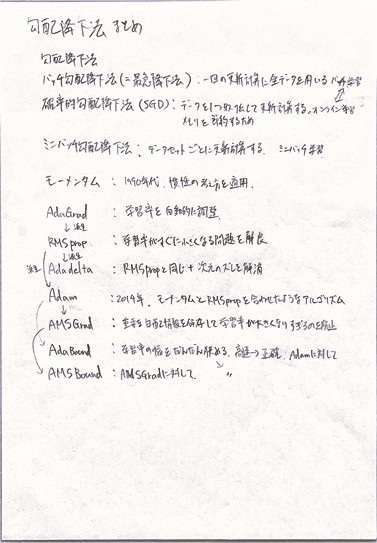 勾配降下法 まとめ
勾配降下法
バッチ勾配降下法(=最急降下法): 一回の更新計算に全データを用いる バッチ学習
確率的勾配降下法(SGD): データを1つ取り出して更新計算する。オンライン学習
メモリを節約するため
ミニバッチ勾配降下法: データセットごとに更新計算する。 ミニバッチ学習
モーメンタム : 1990年代. 慣性の考え方を適用.
AdaGrad : 学習率を自動的に調整.
↓派生
RMSprop : 学習率がすぐに小さくなる問題を解良
↓派生
派生 Adadelta : RMSpropと同じ + 次元のズレを解消
Adam : 2014年. モーメンタムとRMSpropを合わせたようなアルゴリズム
AMSGrad : 勾配情報を 学習率が大きくなりすぎるのを防止
AdaBound : 学習率の幅をだんだん狭める. 高速→正確. Adamに対して
AMSBound : AMSGradに対して. 〃